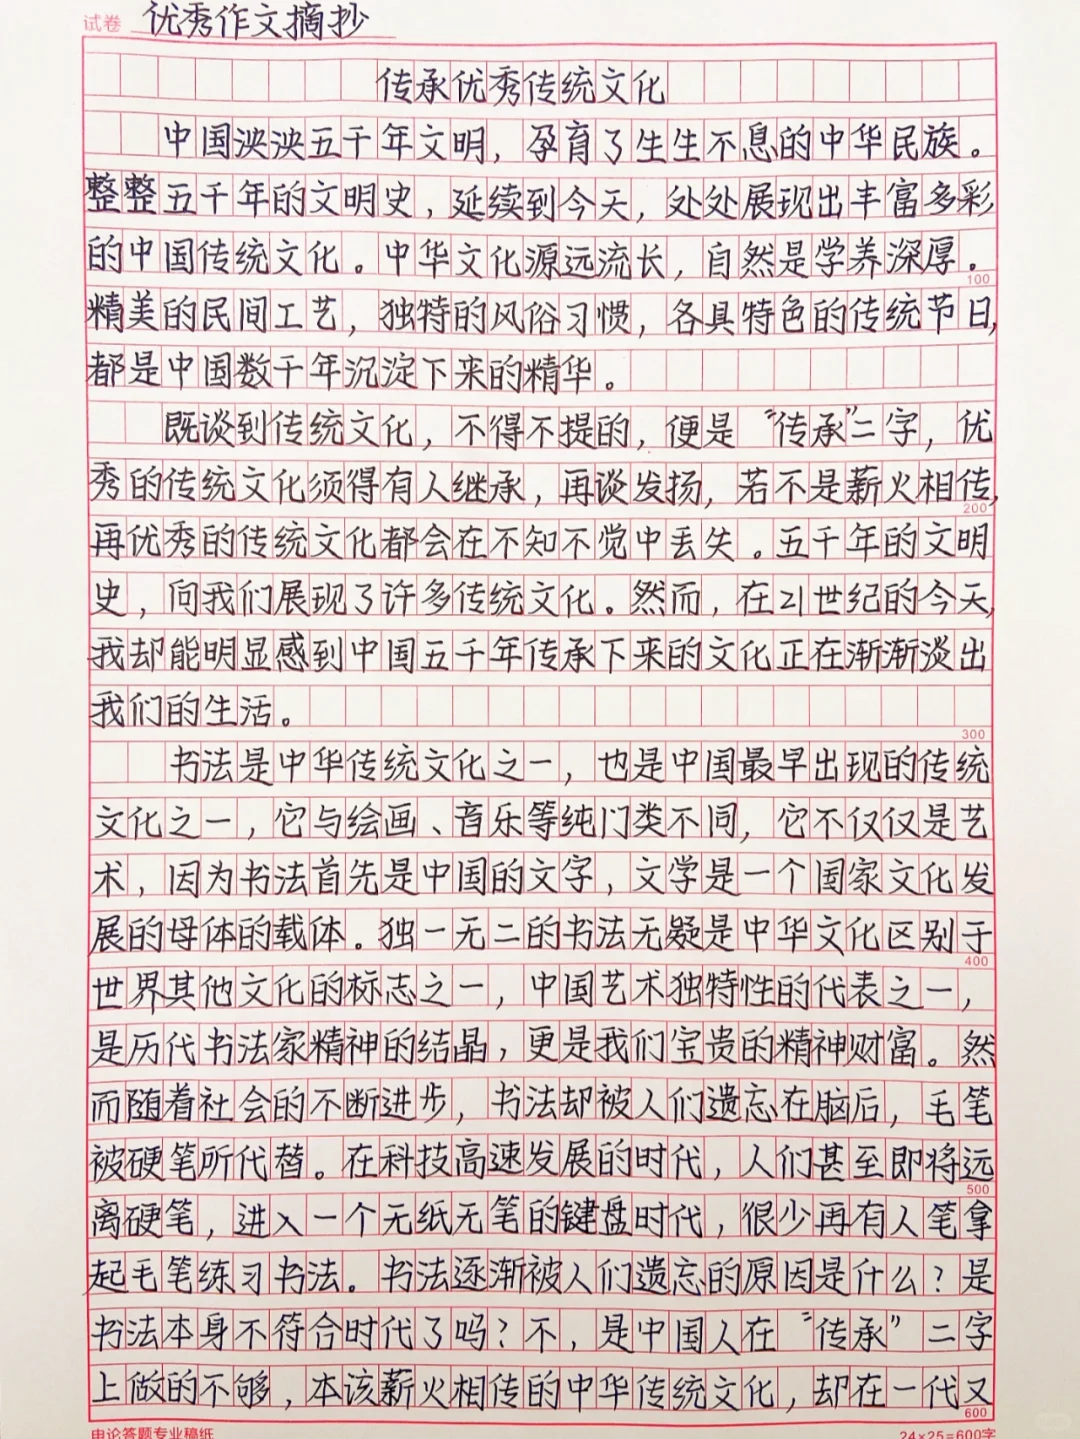 试卷 优秀作文摘抄
传承优秀传统文化
中国泱泱五千年文明，孕育了生生不息的中华民族。
整整五千年的文明史，延续到今天，处处展现出丰富多彩
的中国传统文化。中华文化源远流长，自然是学养深厚。
100
精美的民间工艺，独特的风俗习惯，各具特色的传统节日，
都是中国数千年沉淀下来的精华。
既谈到传统文化，不得不提的，便是“传承”二字，优
秀的传统文化须得有人继承，再谈发扬，若不是薪火相传，
200
再优秀的传统文化都会在不知不觉中丢失。五千年的文明
史，向我们展现了许多传统文化。然而，在21世纪的今天，
我却能明显感到中国五千年传承下来的文化正在渐渐淡出
我们的生活。
300
书法是中华传统文化之一，也是中国最早出现的传统
文化之一，它与绘画、音乐等纯门类不同，它不仅仅是艺
术，因为书法首先是中国的文字，文学是一个国家文化发
展的母体的载体。独一无二的书法无疑是中华文化区别于
400
世界其他文化的标志之一，中国艺术独特性的代表之一，
是历代书法家精神的结晶，更是我们宝贵的精神财富。然
而随着社会的不断进步，书法却被人们遗忘在脑后，毛笔
被硬笔所代替。在科技高速发展的时代，人们甚至即将远
500
离硬笔，进入一个无纸无笔的键盘时代，很少再有人笔拿
起毛笔练习书法。书法逐渐被人们遗忘的原因是什么？是
书法本身不符合时代了吗？不，是中国人在“传承”二字
上做的不够，本该薪火相传的中华传统文化，却在一代又
600
申论答题专业稿纸 24×25=600字